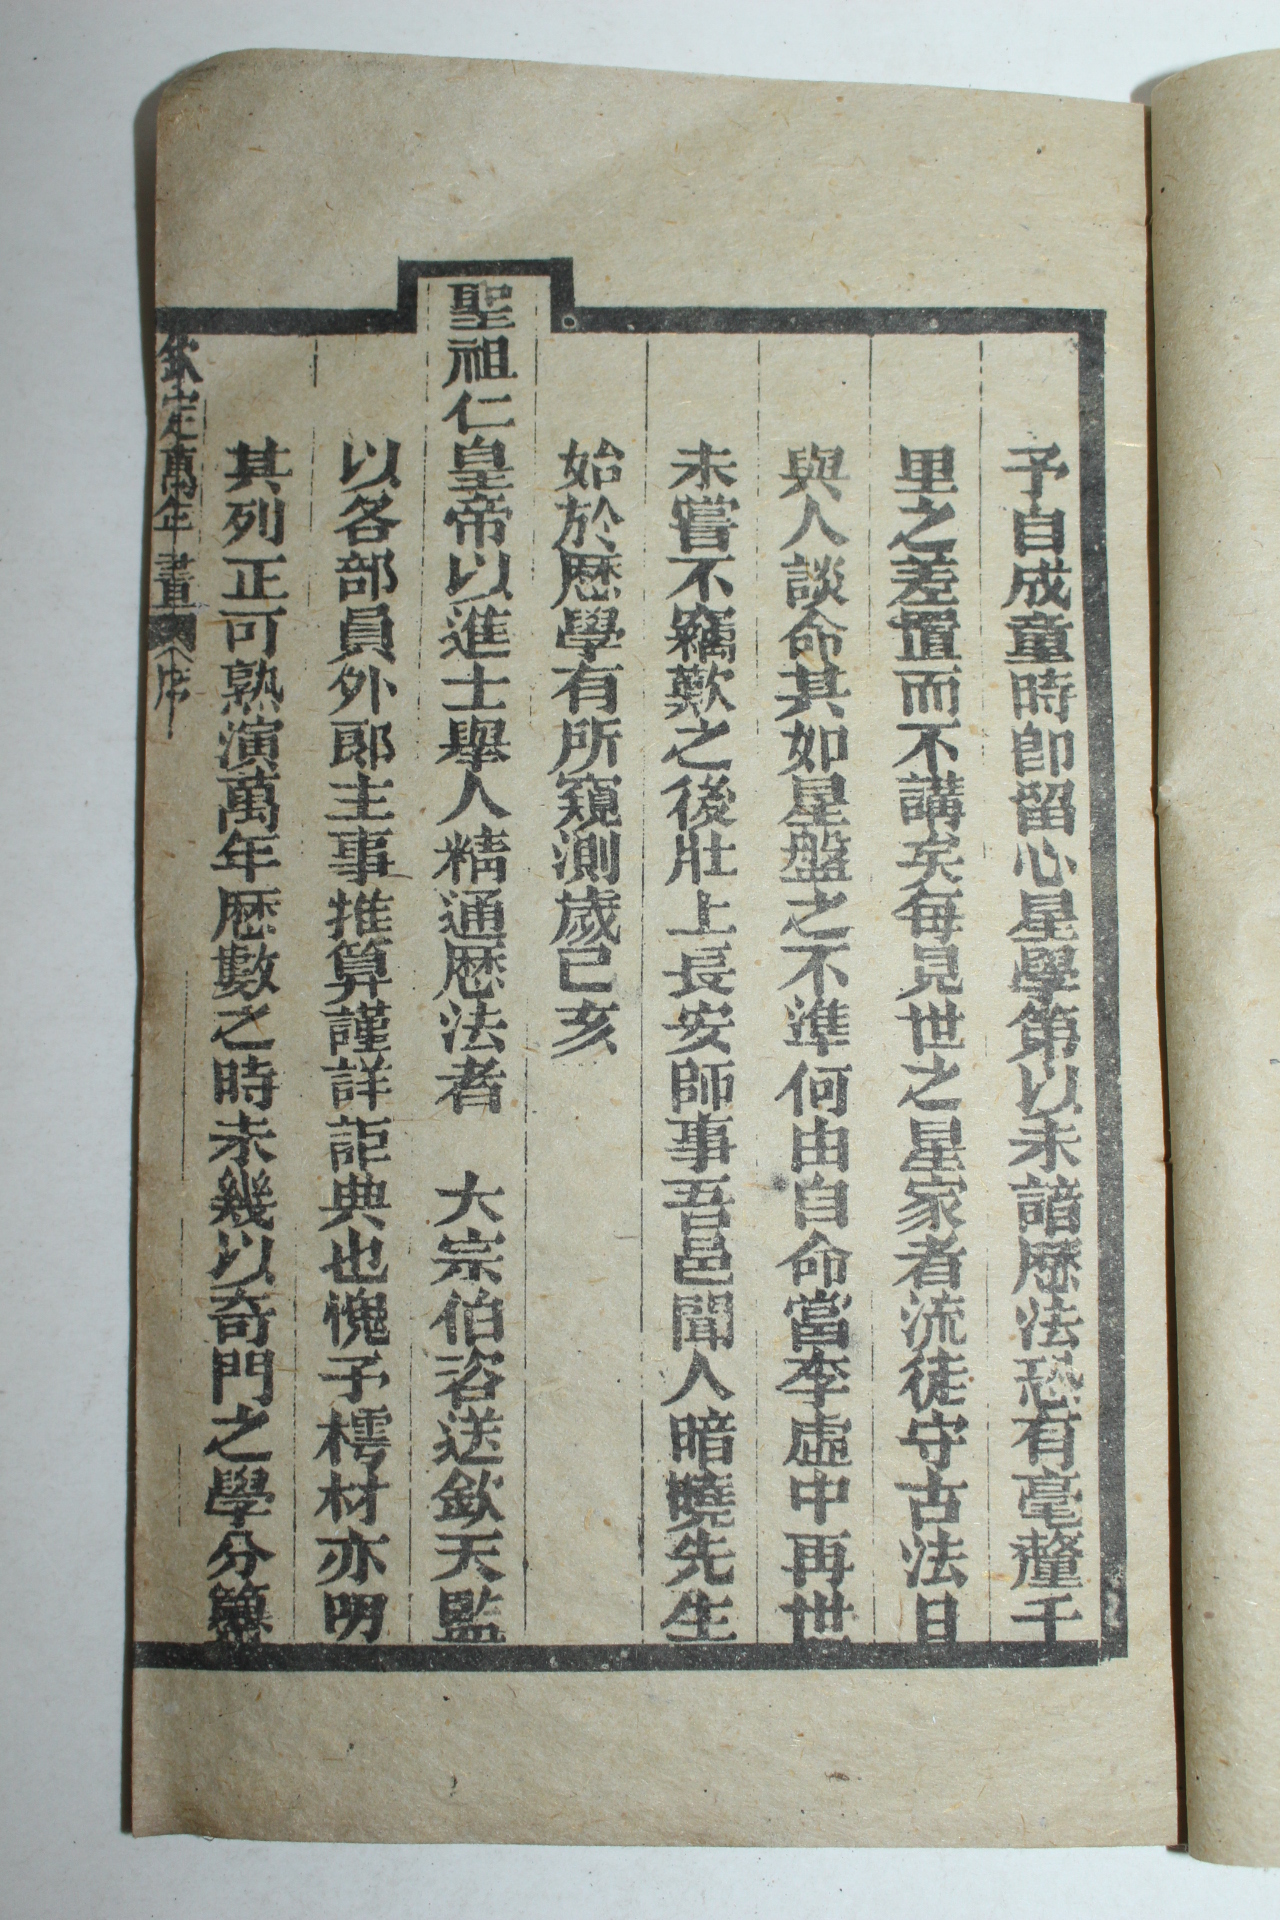 予自成童時卽留心星學第以未諳歷法恐有毫釐千
里之差置而不講矣每見世之星家者流徒守古法日
與人談命其如星盤之不準何由自命當李虛中再世
未嘗不竊歎之後壯上長安師事吾邑聞人暗曉先生
始於歷學有所窺測歲已亥
聖祖仁皇帝以進士舉人精通歷法者 大宗伯咨送欽天監
以各部員外郞主事推算謹詳詎典也愧予樗材亦明
其列正可熟演萬年歷數之時未幾以奇門之學分纂
欽定萬年書 序